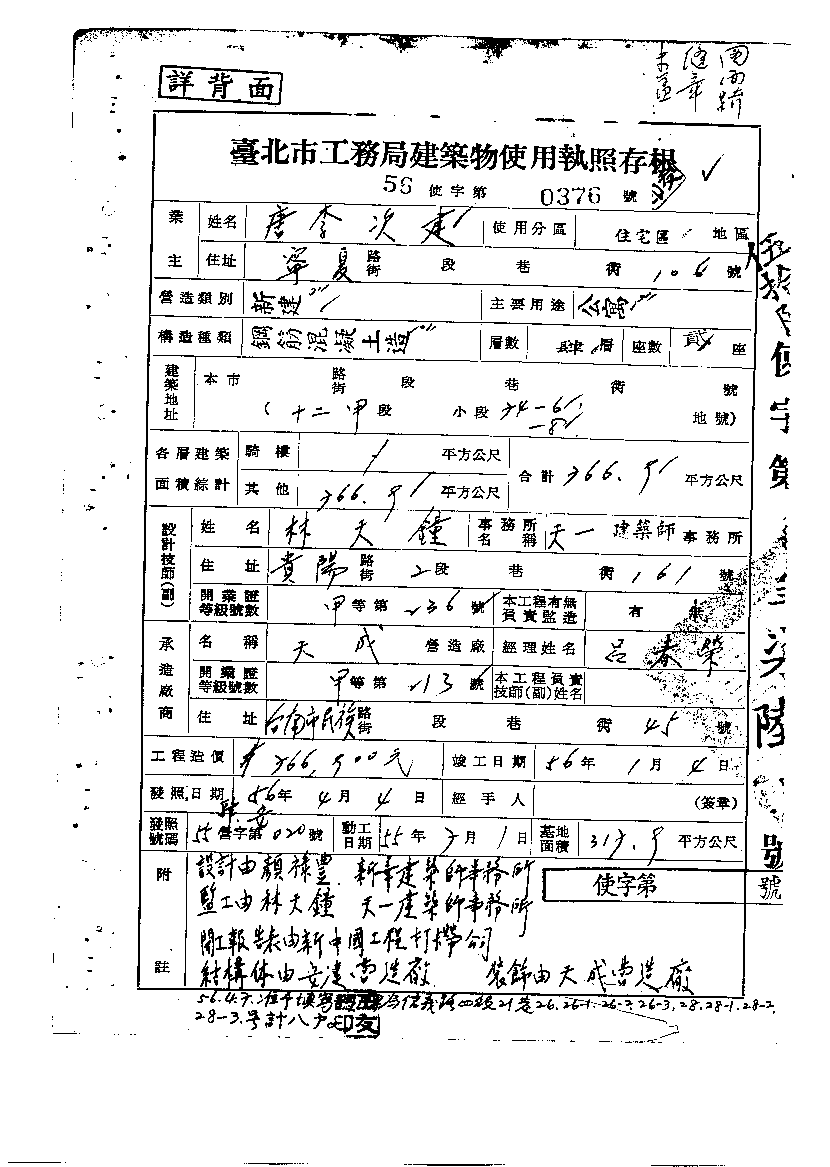 詳背面
臺北市工務局建築物使用執照存根
56 使字第 0376 號
業主 姓名 唐李次建 使用分區 住宅區 地區
住址 寧夏 路街 段 巷 衖 106 號
營造類別 新建 主要用途 公寓
構造種類 鋼筋混凝土造 層數 肆層 座數 貳座
建築地址 本市 路街 段 巷 衖 號
(十二甲段 小段 34-6 地號)
-8
各層建築面積綜計 騎樓 平方公尺 合計 366.91 平方公尺
其他 366.91 平方公尺
設計技師(副) 姓名 林天鐘 事務所名稱 天一 建築師 事務所
住址 貴陽 路街 2段 巷 衖 161 號
開業證等級號數 甲等第 236 號 本工程有無負責監造 有 無
承造廠商 名稱 天成 營造廠 經理姓名 呂春榮
開業證等級號數 甲等第 號 本工程負責技師(副)姓名
住址 台南市民族 路街 段 巷 衖 45 號
工程造價 366,900元 竣工日期 56年1月4日
發照日期 56年4月4日 經手人 (簽章)
發照號碼 55 營字第 020 號 動工日期 55年7月1日 基地面積 317.9 平方公尺
附註 設計由顏祿豐 新華建築師事務所
監工由林天鐘 天一建築師事務所
開工報告表由新中國工程打樁公司
結構体由安達營造廠 裝飾由天成營造廠
使字第 號
28-3.號計八戶